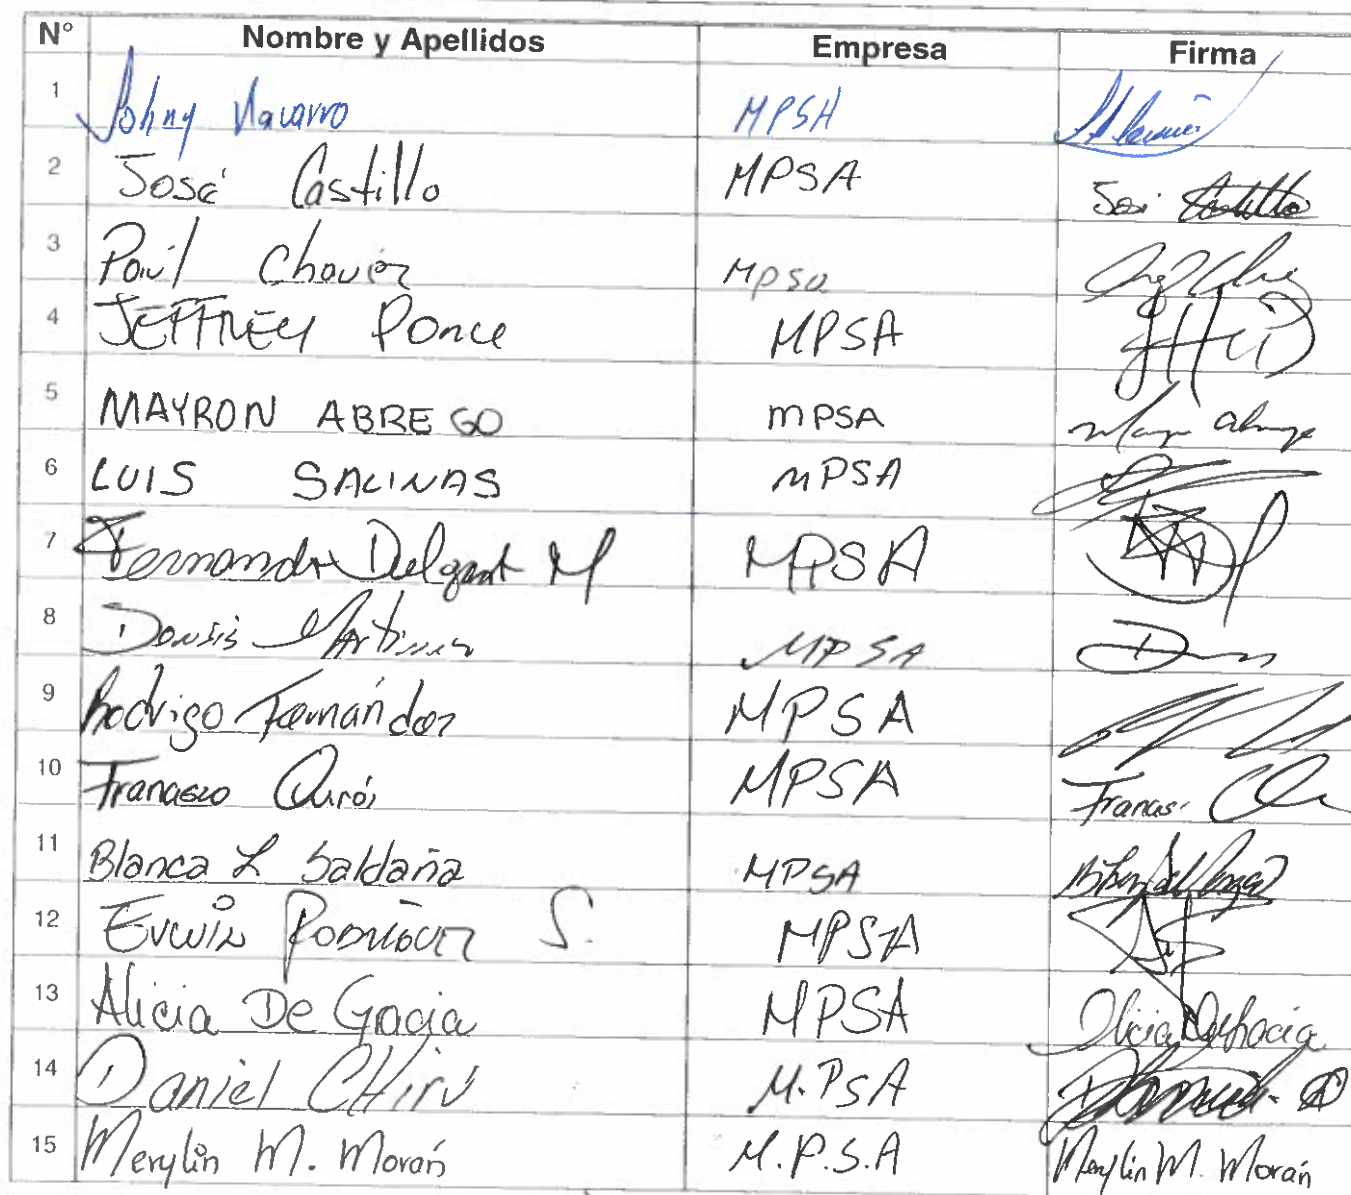 N° Nombre y Apellidos Empresa Firma
1 Johny Navarro MPSA
2 José Castillo MPSA José Castillo
3 Paúl Chavéz MPSA
4 JEFFREY Ponce MPSA
5 MAYRON ABREGO MPSA
6 LUIS SALINAS MPSA
7 Fernando M MPSA
8 Martinez MPSA
9 Rodrigo Fernández MPSA
10 Francisco Quirós MPSA
11 Blanca L Saldaña MPSA
12 Erwin Rodríguez S. MPSA
13 Alicia De Gracia MPSA Alicia DeGracia
14 Daniel CHirú M.PSA
15 Merylin M. Morán M.P.S.A Merylin M. Morán